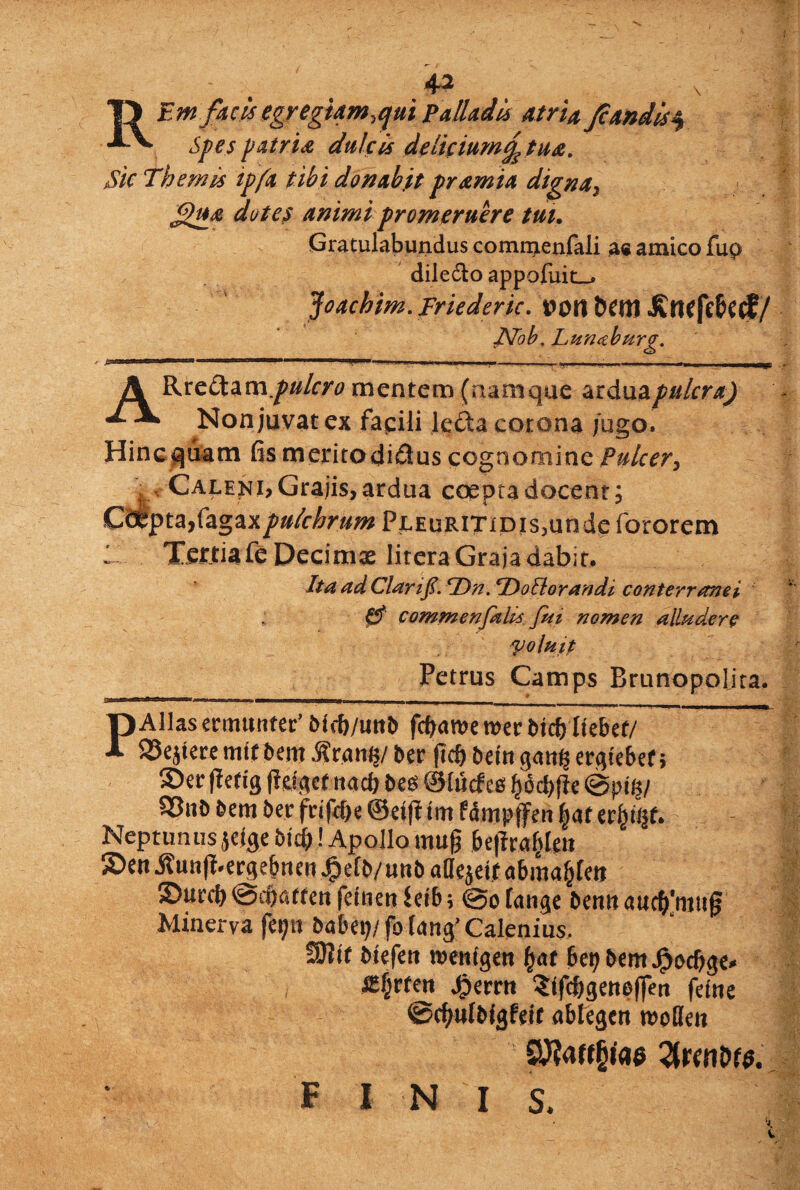 42
REm facis egregiam, qui Palladis atria scandis;
Spes patriæ dulcis deliciumq; tuæ.
Sic Themis ipsa tibi donabit præmia digna,
Quæ dotes animi promeruère tui.
Gratulabundus commensali ac amico suo
dilecto apposuit
Joachim. Friederic. von dem Knesebeck/
Nob. Lunæburg.
ARrectam pulcro mentem (namque ardua pulcra)
Non juvat ex facili lecta corona jugo.
Hinc quam sis merito dictus cognomine Pulcer,
CALENI, Grajis, ardua cœpta docent;
Cœpta, sagax pulchrum PLEURITIDIS, unde sororem
Tertia se Decimæ litera Graja dabit.
Ita ad Clariß. Dn. Doctorandi conterranei
& commensalis sui nomen alludere
voluit
Petrus Camps Brunopolita.
PAllas ermunter' dich/und schawe wer dich liebet/
Beziere mit dem Krantz/ der sich dein gantz ergiebet;
Der stetig steiget nach des Glückes höchste Spitz/
Vnd dem der frische Geist im kämpffen hat erhitzt.
Neptunus zeige dich! Apollo muß bestrahlen
Den Kunst-ergebnen Held/und allezeit abmahlen
Durch Schatten seinen Leib; So lange denn auch'muß
Minerva seyn dabey/ so lang' Calenius.
Mit diesen wenigen hat bey dem Hochge-
Ehrten Herrn Tischgenossen seine
Schuldigkeit ablegen wollen
Matthias Arendts.
FINIS.